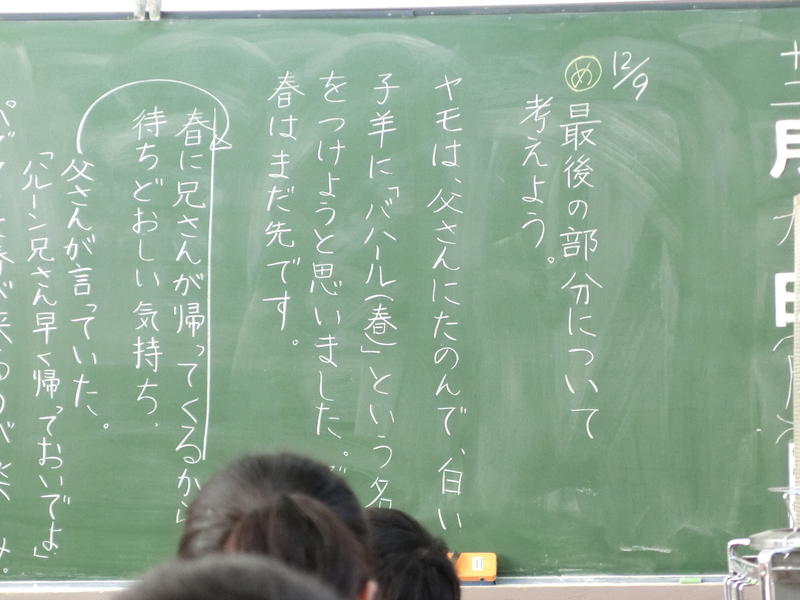 十二月九日
12/9
め 最後の部分について
考えよう。
ヤモは、父さんにたのんで、白い
子羊に「バハール(春)」という名
をつけようと思いました。で
春はまだ先です。
春に兄さんが帰ってくるから
待ちどおしい気持ち。
父さんが言っていた。
「ハルーン兄さん早く帰っておいでよ」